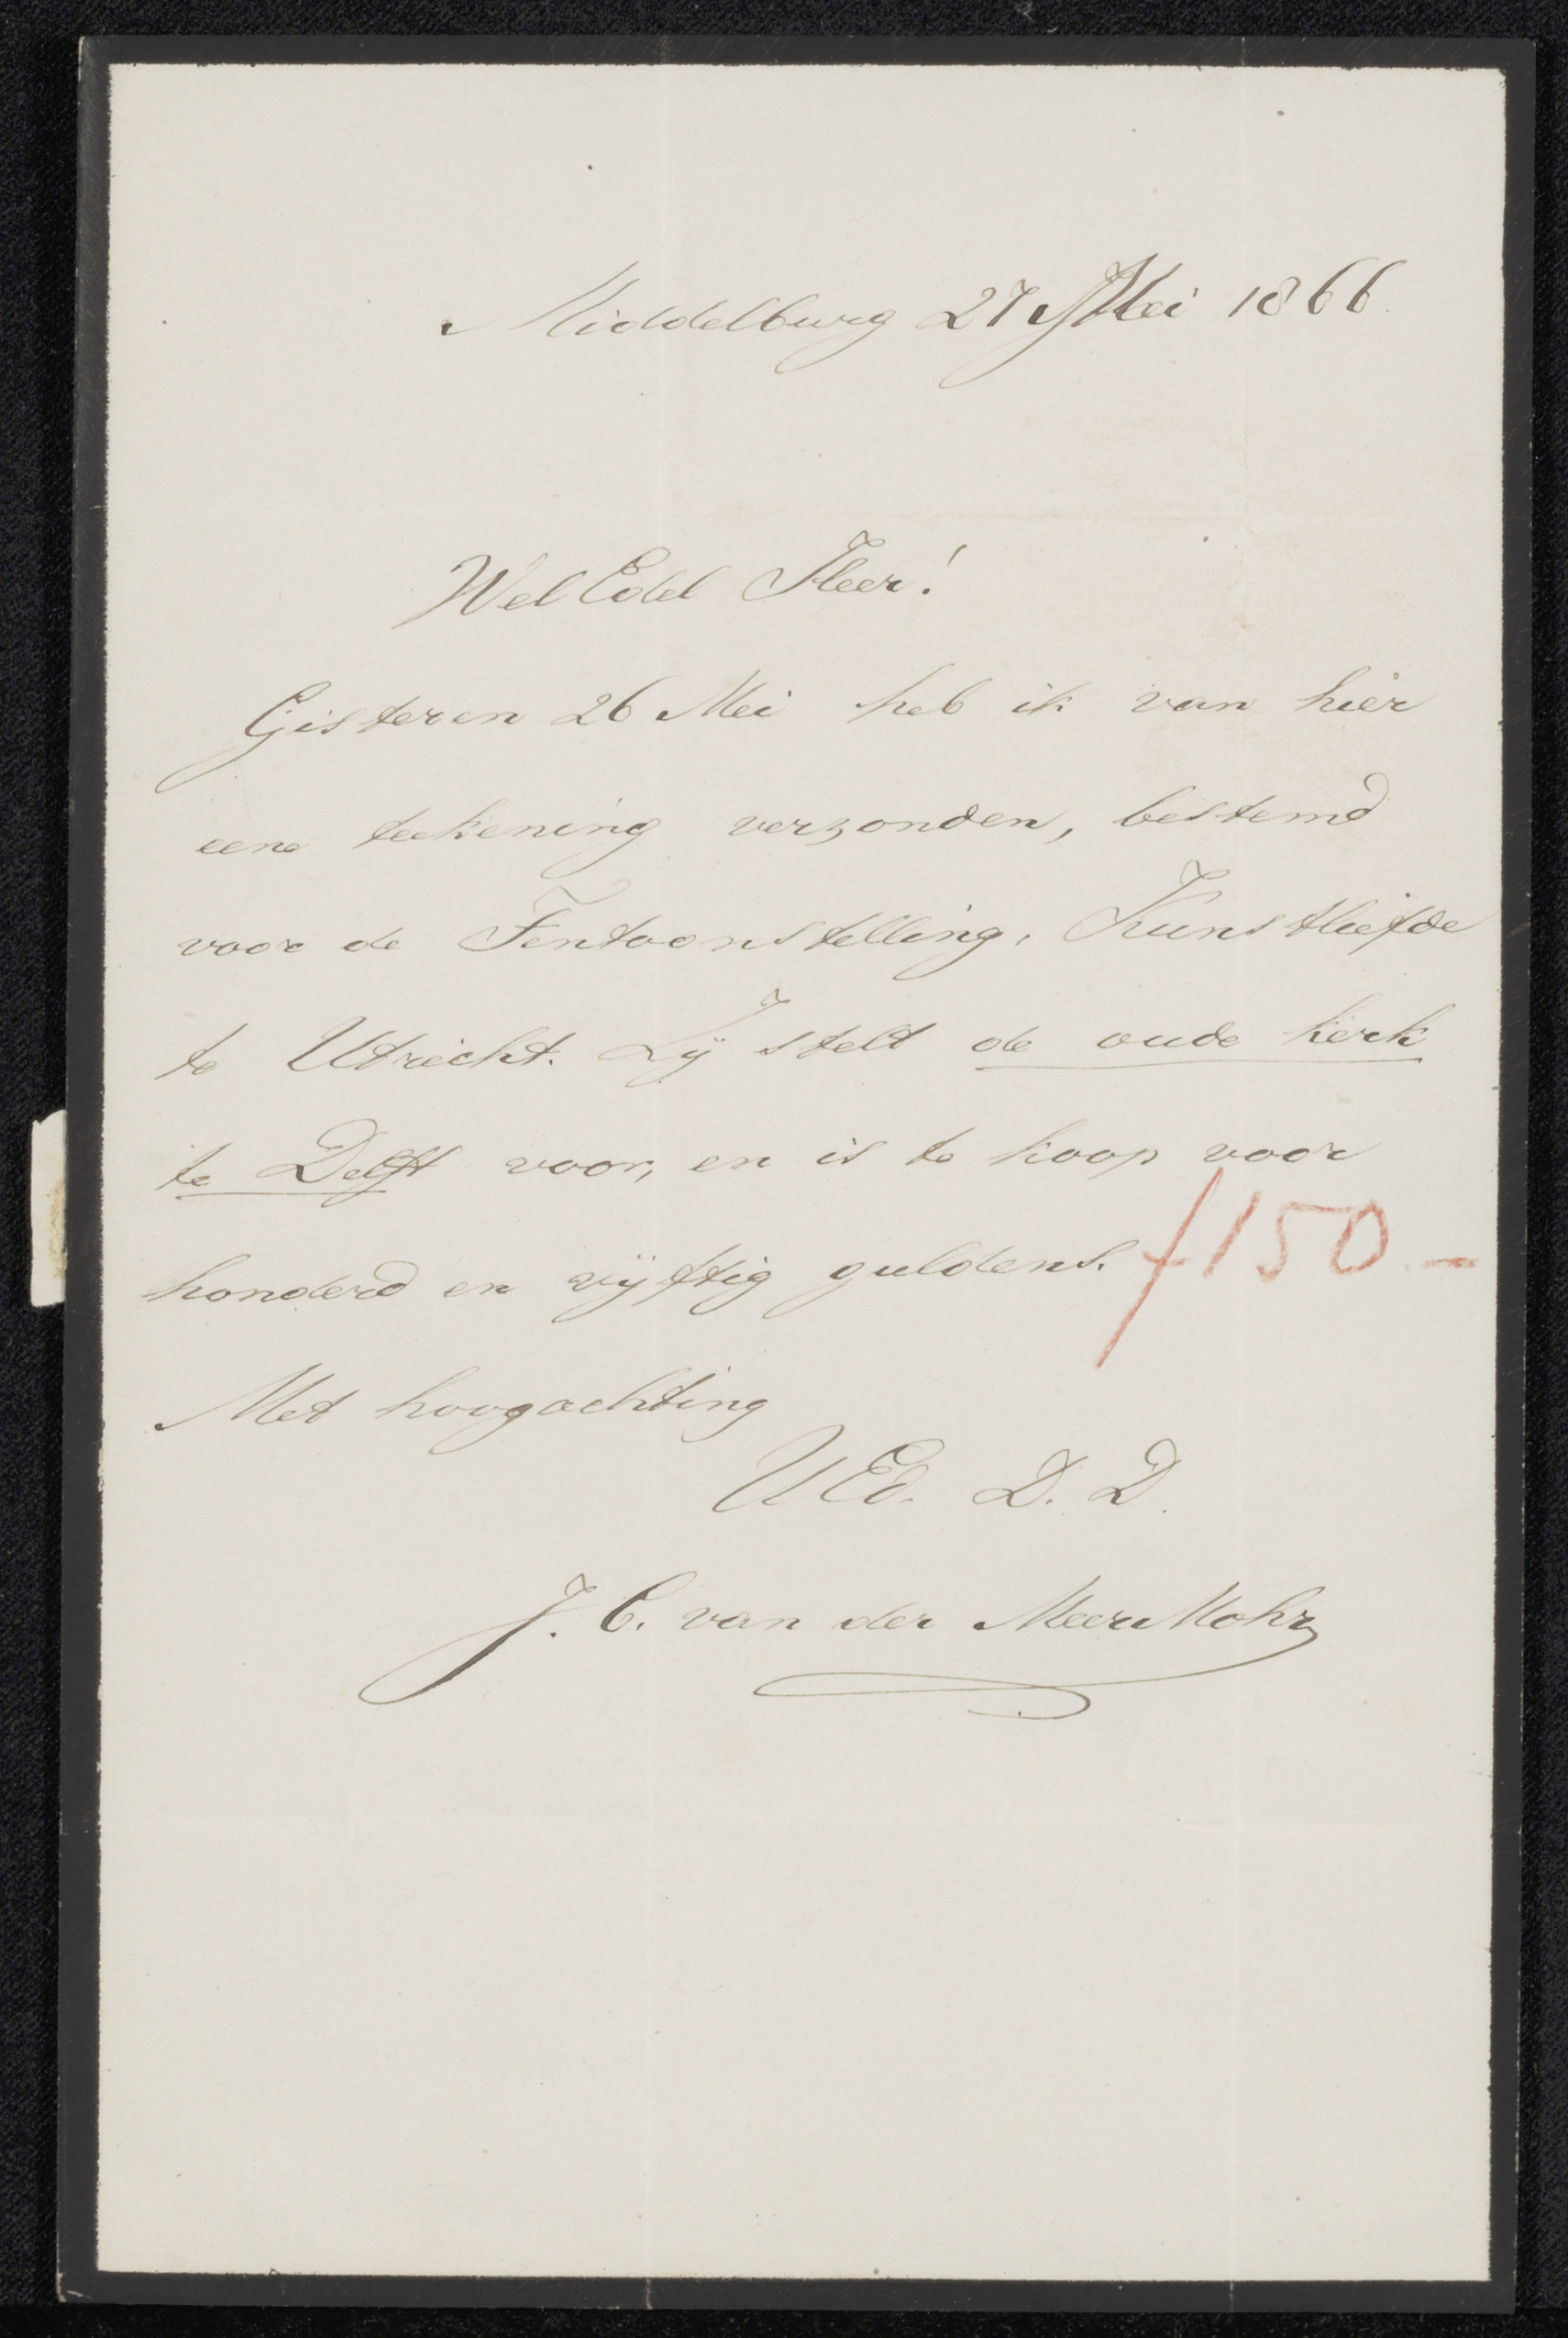 Middelburg 27 Mei 1866.
Wel Edel Heer!
Gisteren 26 Mei heb ik van hier
eene teekening verzonden, bestemd
voor de Tentoonstelling, Kunstliefde
te Utrecht. Zij stelt de oude kerk
te Delft voor, en is te koop voor
honderd en vijftig guldens. f 150.-
Met hoogachting
UEd. D. D.
J. C. van der Meer Mohr